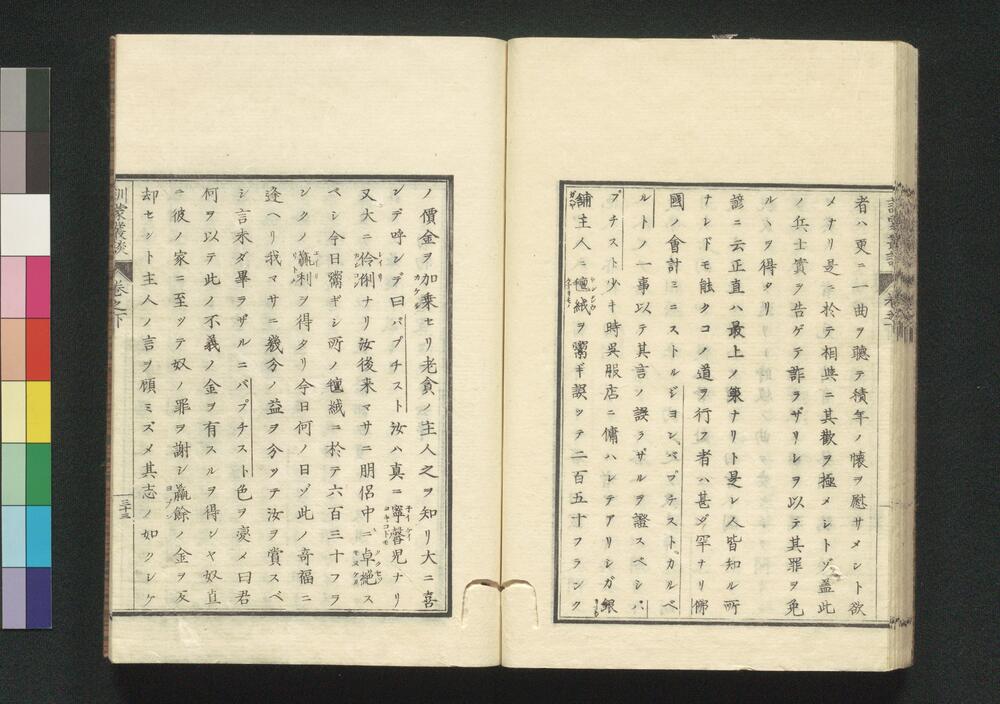 者ハ更ニ一曲ヲ聴テ積年ノ懐ヲ慰サメント欲
メナリ是ニ於テ相與ニ其歡ヲ極メシトゾ蓋此
ノ兵士實ヲ告ゲテ詐ラザリシヲ以テ其罪ヲ免
ルヽヲ得タリ
諺ニ云正直ハ最上ノ策ナリト是レ人皆知ル所
ナレドモ能クコノ道ヲ行フ者ハ甚ダ罕ナリ佛
國ノ會計ミニストルジヨン、バプテスト、カルベ
ルトノ一事以テ其言ノ誤ラザルヲ證スベシバ
プチスト少キ時呉服店ニ傭ハレテアリシガ銀
舗主人ニ氊絨ヲ鬻ギ誤ツテ二百五十フランク
ノ價金ヲ加乗セリ老貪ノ主人之ヲ知リ大ニ喜
ンデ呼ンデ曰バプチスト汝ハ真ニ寧馨児ナリ
又大ニ伶俐ナリ汝後来マサニ朋侶中ニ卓絶ス
ベシ今日鬻ギシ所ノ氊絨ニ於テ六百三十フラ
ンクノ贏利ヲ得タリ今日何ノ日ゾ此ノ奇福ニ
逢ヘリ我マサニ幾分ノ益ヲ分ツテ汝ヲ賞スベ
シ言未ダ畢ラザルニバプチスト色ヲ変メ曰君
何ヲ以テ此ノ不義ノ金ヲ有スルヲ得ンヤ奴直
ニ彼ノ家ニ至ツテ奴ノ罪ヲ謝シ贏餘ノ金ヲ反
却セント主人ノ言ヲ顧ミズメ其志ノ如クシケ
訓蒙叢談
卷之下
三十三